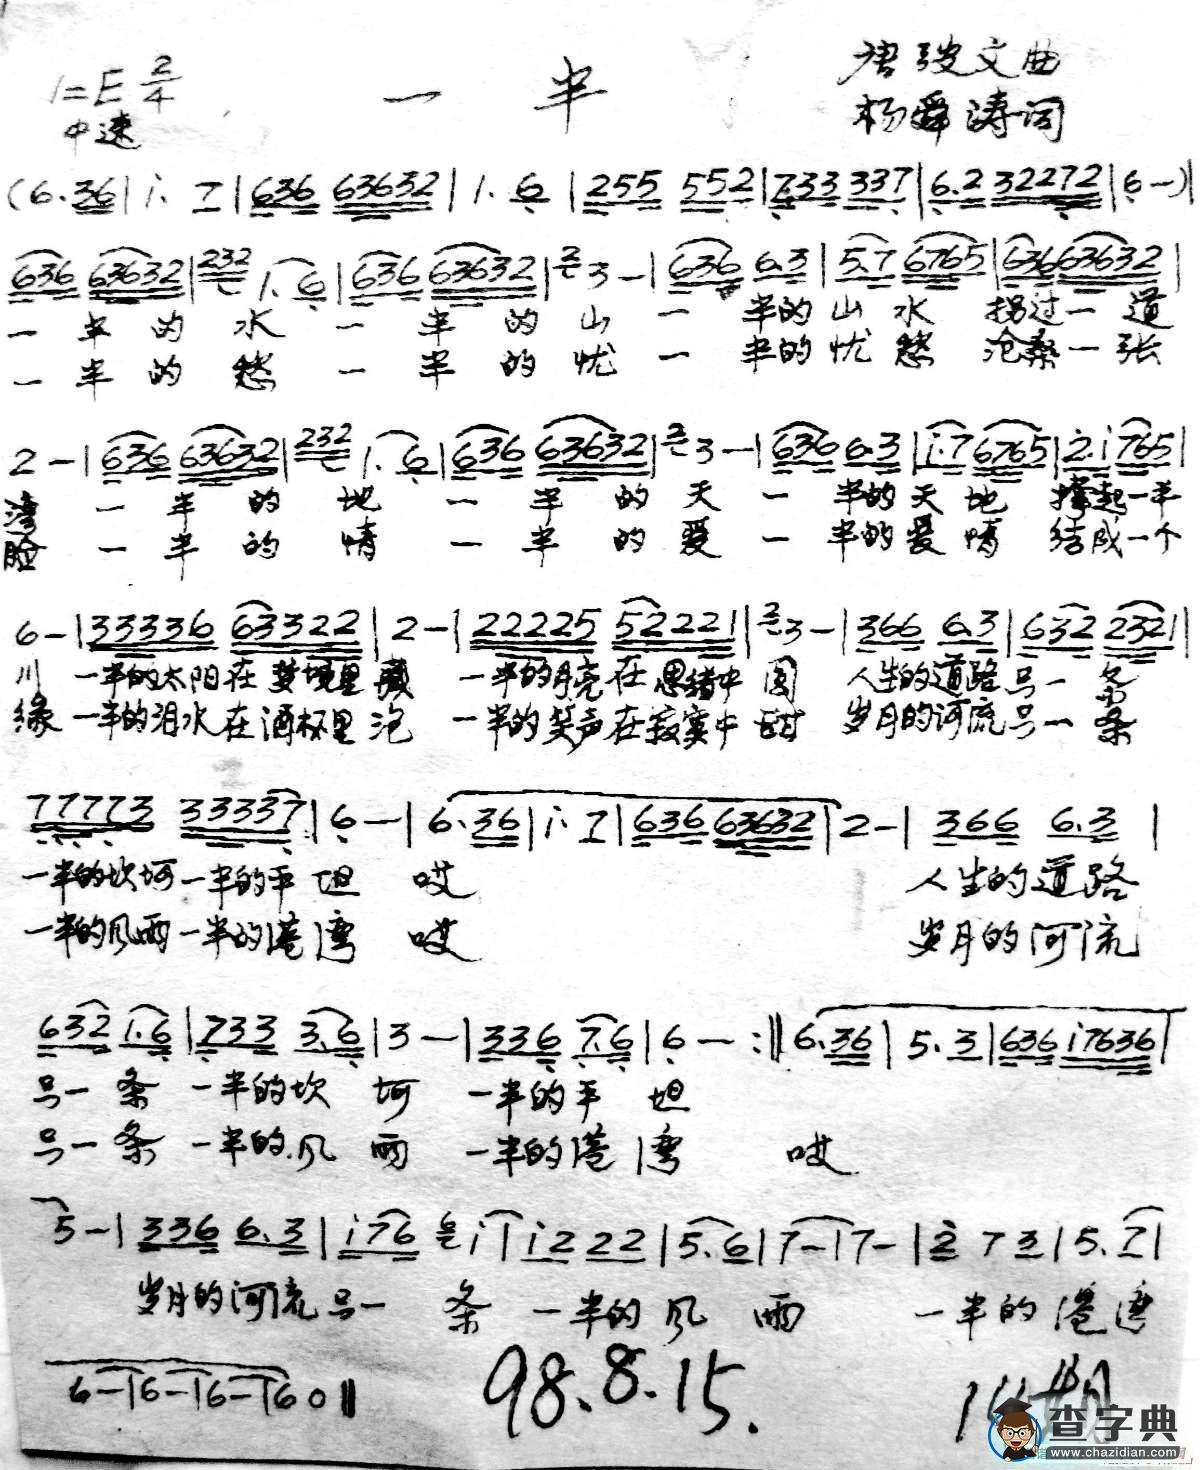 1=E 2/4
中速
一 半
唐跛文曲
杨舜涛词
(6.36|i. 7|636 63632|1. 6|255 552|733 337|6.2 32272|6-)|
636 63632|232 1. 6|636 63632|2 3-|636 6.3|5.7 6765|636 63632|
一 半 的 水 一 半 的 山 一 半的山 水 拐过一 道
一 半 的 愁 一 半 的 忧 一 半的忧 愁 沧桑一 张
2-|636 63632|232 1. 6|636 63632|2 3-|636 6.3|i.7 6765|2.i 765|
湾 一 半 的 地 一 半 的 天 一 半的天 地 撑起一半
脸 一 半 的 情 一 半 的 爱 一 半的爱 情 结成一个
6-|33336 63322|2-|22225 52221|2 3-|366 6.3|632 2321|
川 一半的太阳在 梦境里 藏 一半的月亮在 思绪中 圆 人生的道路只一 条
缘 一半的泪水在酒杯里 泡 一半的笑声在寂寞中 甜 岁月的河流只一 条
77773 33337|6-|6.36|i. 7|636 63632|2-|366 6.3|
一半的坎坷一半的平 坦 哎 人生的道路
一半的风雨一半的港 湾 哎 岁月的河流
632 1.6|733 3.6|3-|336 7.6|6-:‖6.36|5.3|636 i7636|
只一 条 一半的坎 坷 一半的平 坦
只一条 一半的风 雨 一半的港 湾 哎
5-|336 6.3|i76 6 i|i2 22|5.6|7-|7-|2 7 3|5. 7|
岁月的河流只一 条 一半的风 雨 一半的港 湾
6-|6-|6-|60‖
98.8.15.
查字典
www.chazidian.com